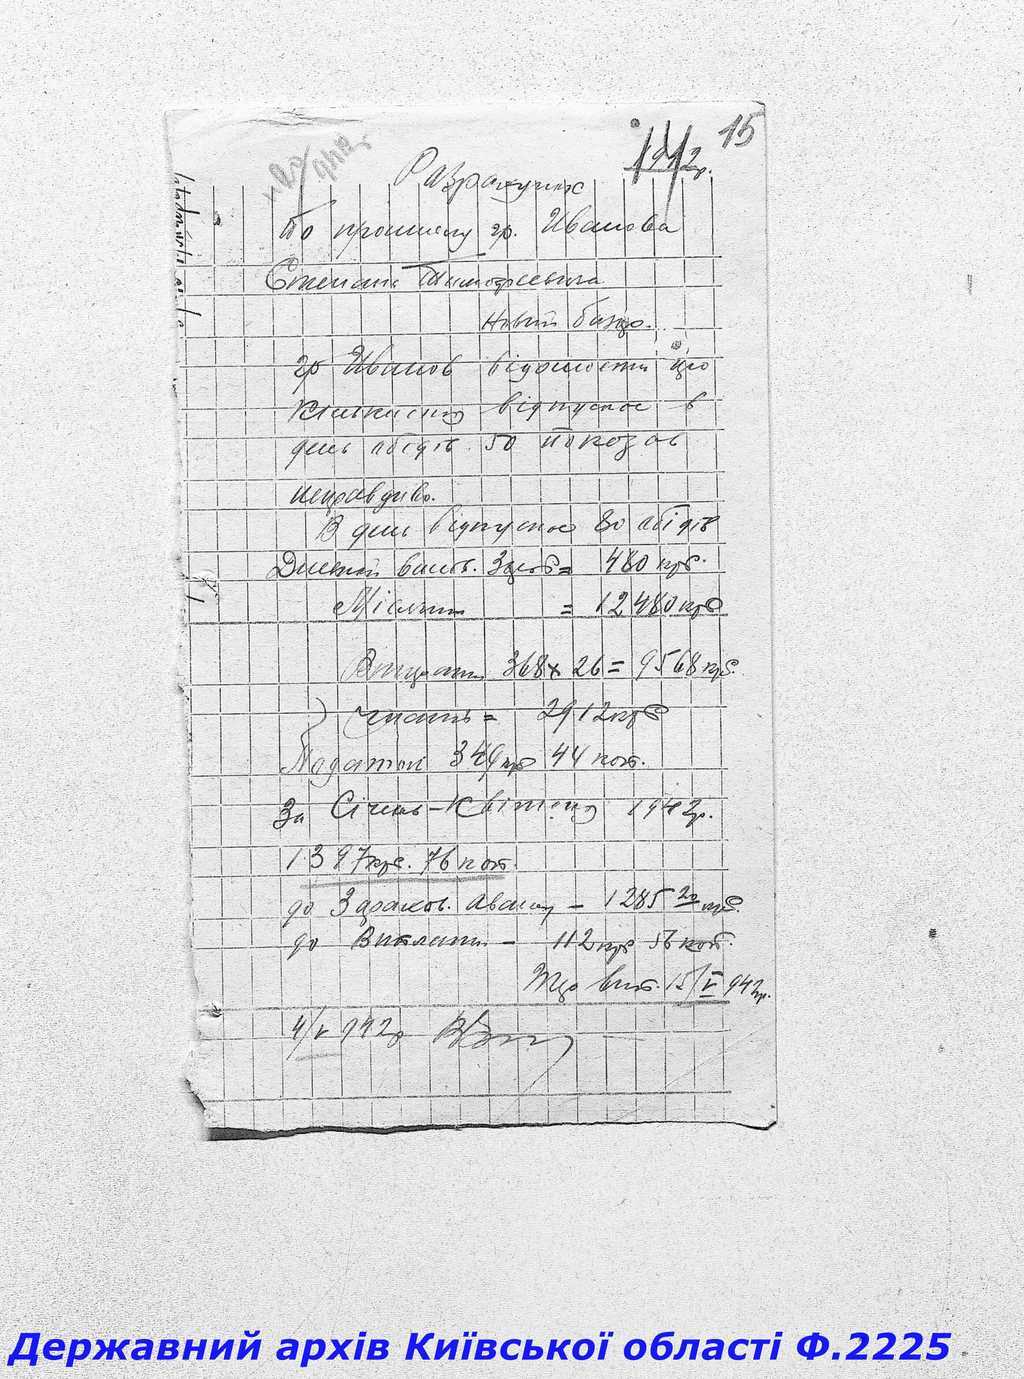 15
1942р.
Розрахунок
По промислу гр. Иванова
Степана Тимофеевича
Новий базар.
гр Иванов відомости що
кількисти відпускає в
день обідів 50 показав
неправдиво.
В день відпускає 80 обідів
Денний вал. = 480 крб.
Місячний = 12480 крб
Витрати 368 х 26 = 9568 крб.
чист. = 2912 крб
Податок 349 крб 44 коп.
За Січень-Квітень 1942р.
1397 крб. 76 коп.
до Зарахов. авансу - 1285 20 крб.
до Виплати - 112 крб 56 коп.
15/V 942р.
4/V 942р
Державний архів Київської області Ф.2225